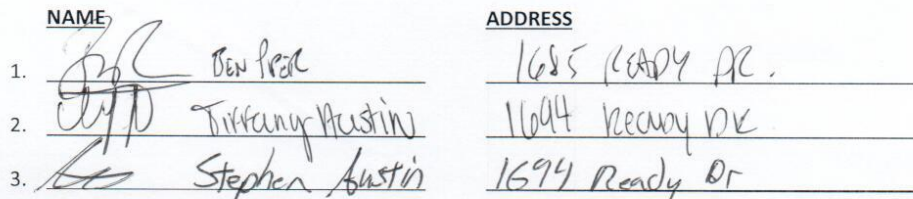 NAME ADDRESS
1. BEN 1685 READY DR.
2. Tiffany Austin 1694 Ready DR
3. Stephen Austin 1694 Ready Dr